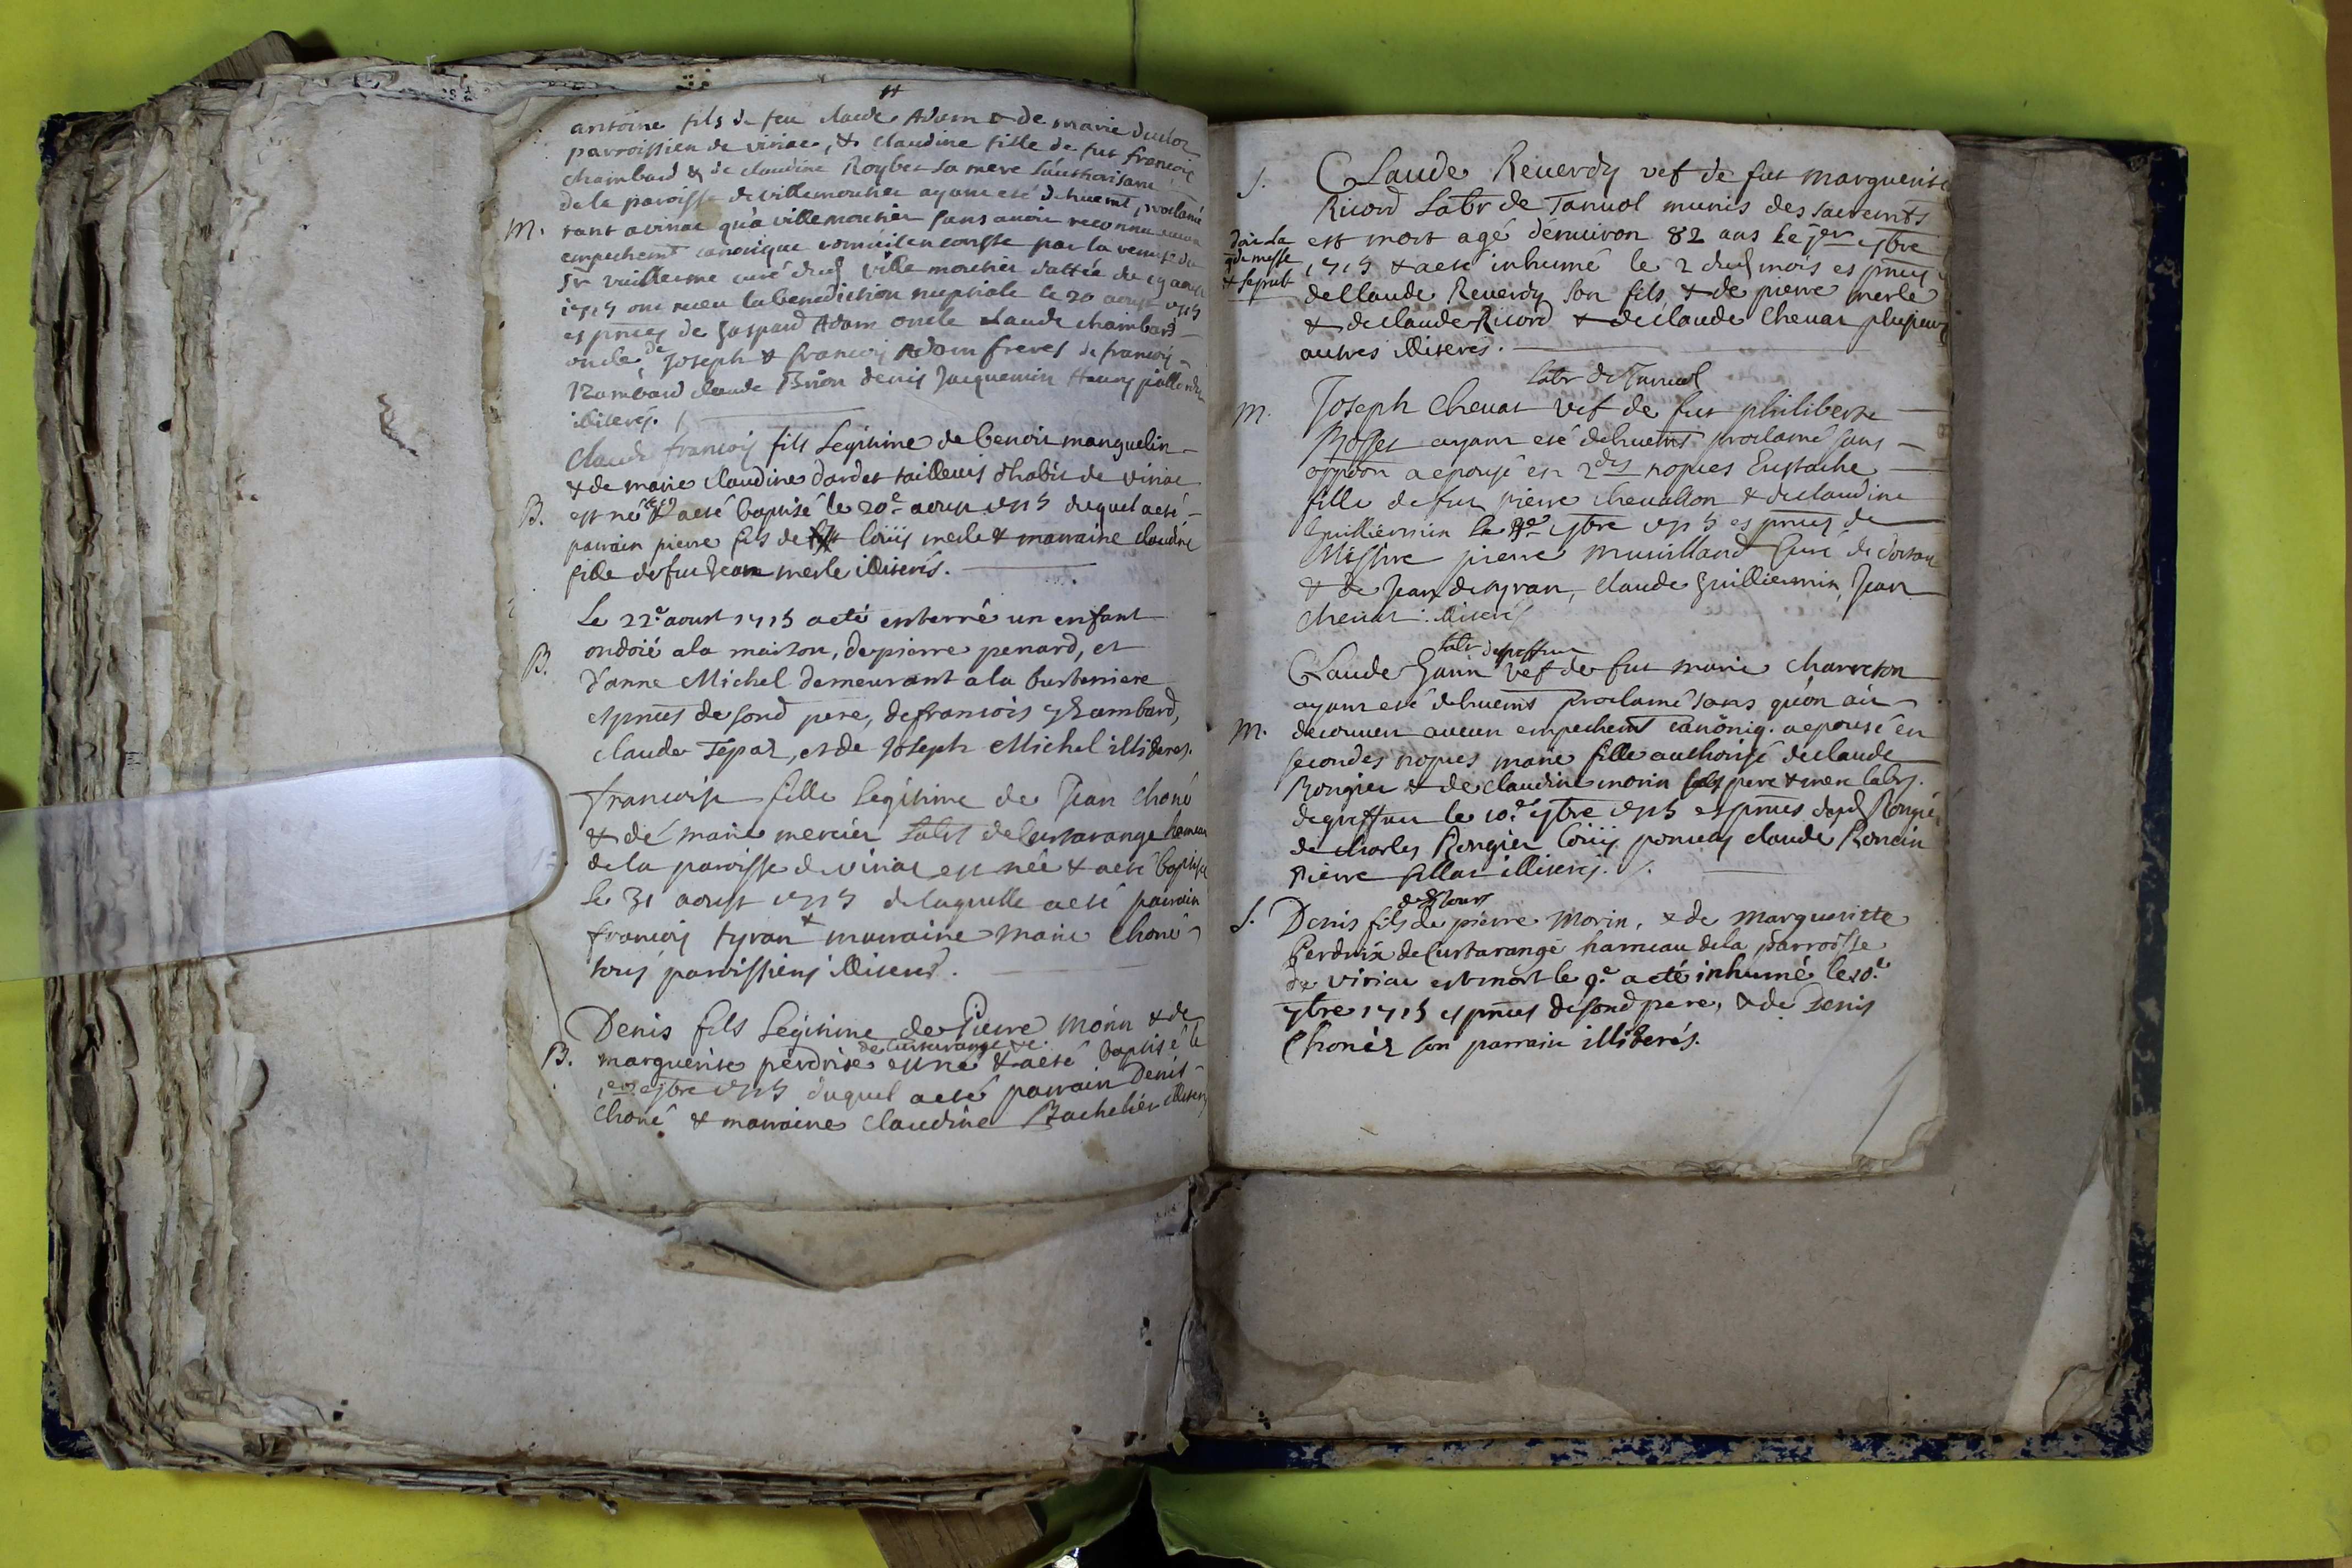 antoine fils de feu claude Adam & de marie duclor
parroissien de viriac, & claudine fille de fut francois
chambard & de claudine Roybet sa mere l'authorisant
de la paroisse de villemoutier ayant eté dehuemt proclamé
M. tant a viriac qu'a villemoutier sans avoir reconnu aucun
empechemt canonique comme il en conste par la remise du
Sr vuillerme curé dud villemoutier dattée du 19 aoust
1715 ont receu la benediction nuptiale le 20 aoust 1715
es pnces de gaspard Adam oncle claude chambard
oncle de Joseph & francois Adam freres de francois
Rambard claude Brion denis Jacquemin
illiterés.
claude francois fils Legitime de benoit manguelin
& de marie claudine dardet tailleurs d'habit de viriac
B. est né & a eté baptisé le 20e aoust 1715 duquel a eté
parrain pierre fils de Loüis merle & marraine claudine
fille de fut Jean merle illiterés.
Le 22e aoust 1715 a eté enterré un enfant
ondoié a la maison, de pierre penard, et
B. d'anne Michel demeurant a la
es pnces de sond pere, de francois Rambard,
claude Tepaz, et de Joseph Michel illiteres.
francoise fille legitime de Jean Choné
& de marie mercier Labrs de Curtarange hameau
de la paroisse de viriac est née & a eté baptisée
le 31 aoust 1715 de laquelle a eté parrain
francois tyran & marraine marie Choné
tous paroissiens illiterés.
Denis fils Legitime de Pierre Morin & de
de Curtarange
B. marguerite perdrise est né & a eté baptisé le
1er 7bre 1715 duquel a eté parrain Denis
Choné & marraine Claudine Bachelier illiterés
S. Claude Reverdy vef de fut marguerite
Ricord Labr de Tanvol munis des sacremts
est mort agé d'environ 82 ans Le 1er 7bre
doit la
gde messe
& sepult
1715 & a eté inhumé le 2 dud mois es pnces
de Claude Reverdy son fils, & de pierre merle
& de claude Ricord & de claude Chevat plusieurs
autres illiteres.
Labr de Tanvol
M. Joseph Chevat vef de fut philiberte
Rosset ayant eté dehuemt proclamé sans
oppoon a epousé en 2des nopces Eustache
fille de fut pierre chevallon & de claudine
Guilliermin le 9e 7bre 1715 es pnces de
Messire pierre muvilland Curé de
& de Jean de tyran, claude guilliermin, Jean
chevat illiterés
Labr
Claude Garin vef de fut marie charreton
ayant eté dehuemt proclamé sans qu'on ait
M. decouvert aucun empechemt canöniq. a epousé en
secondes nopces marie fille authorisé de claude
Rongier & de claudine morin ses pere & mere labrs.
le 10e 7bre 1715 es pnces dud Rongier
de charles Rongier Loüis claude Roncin
Pierre fillar illiterés.
S. Denis fils de pierre Morin, & de Marguerite
Perdrix de Curtarange hameau de la parroisse
de viriac est mort le 9e a eté inhumé le 10e
7bre 1715 es pnces de sond pere, & de Denis
Chonér son parrain illiterés.